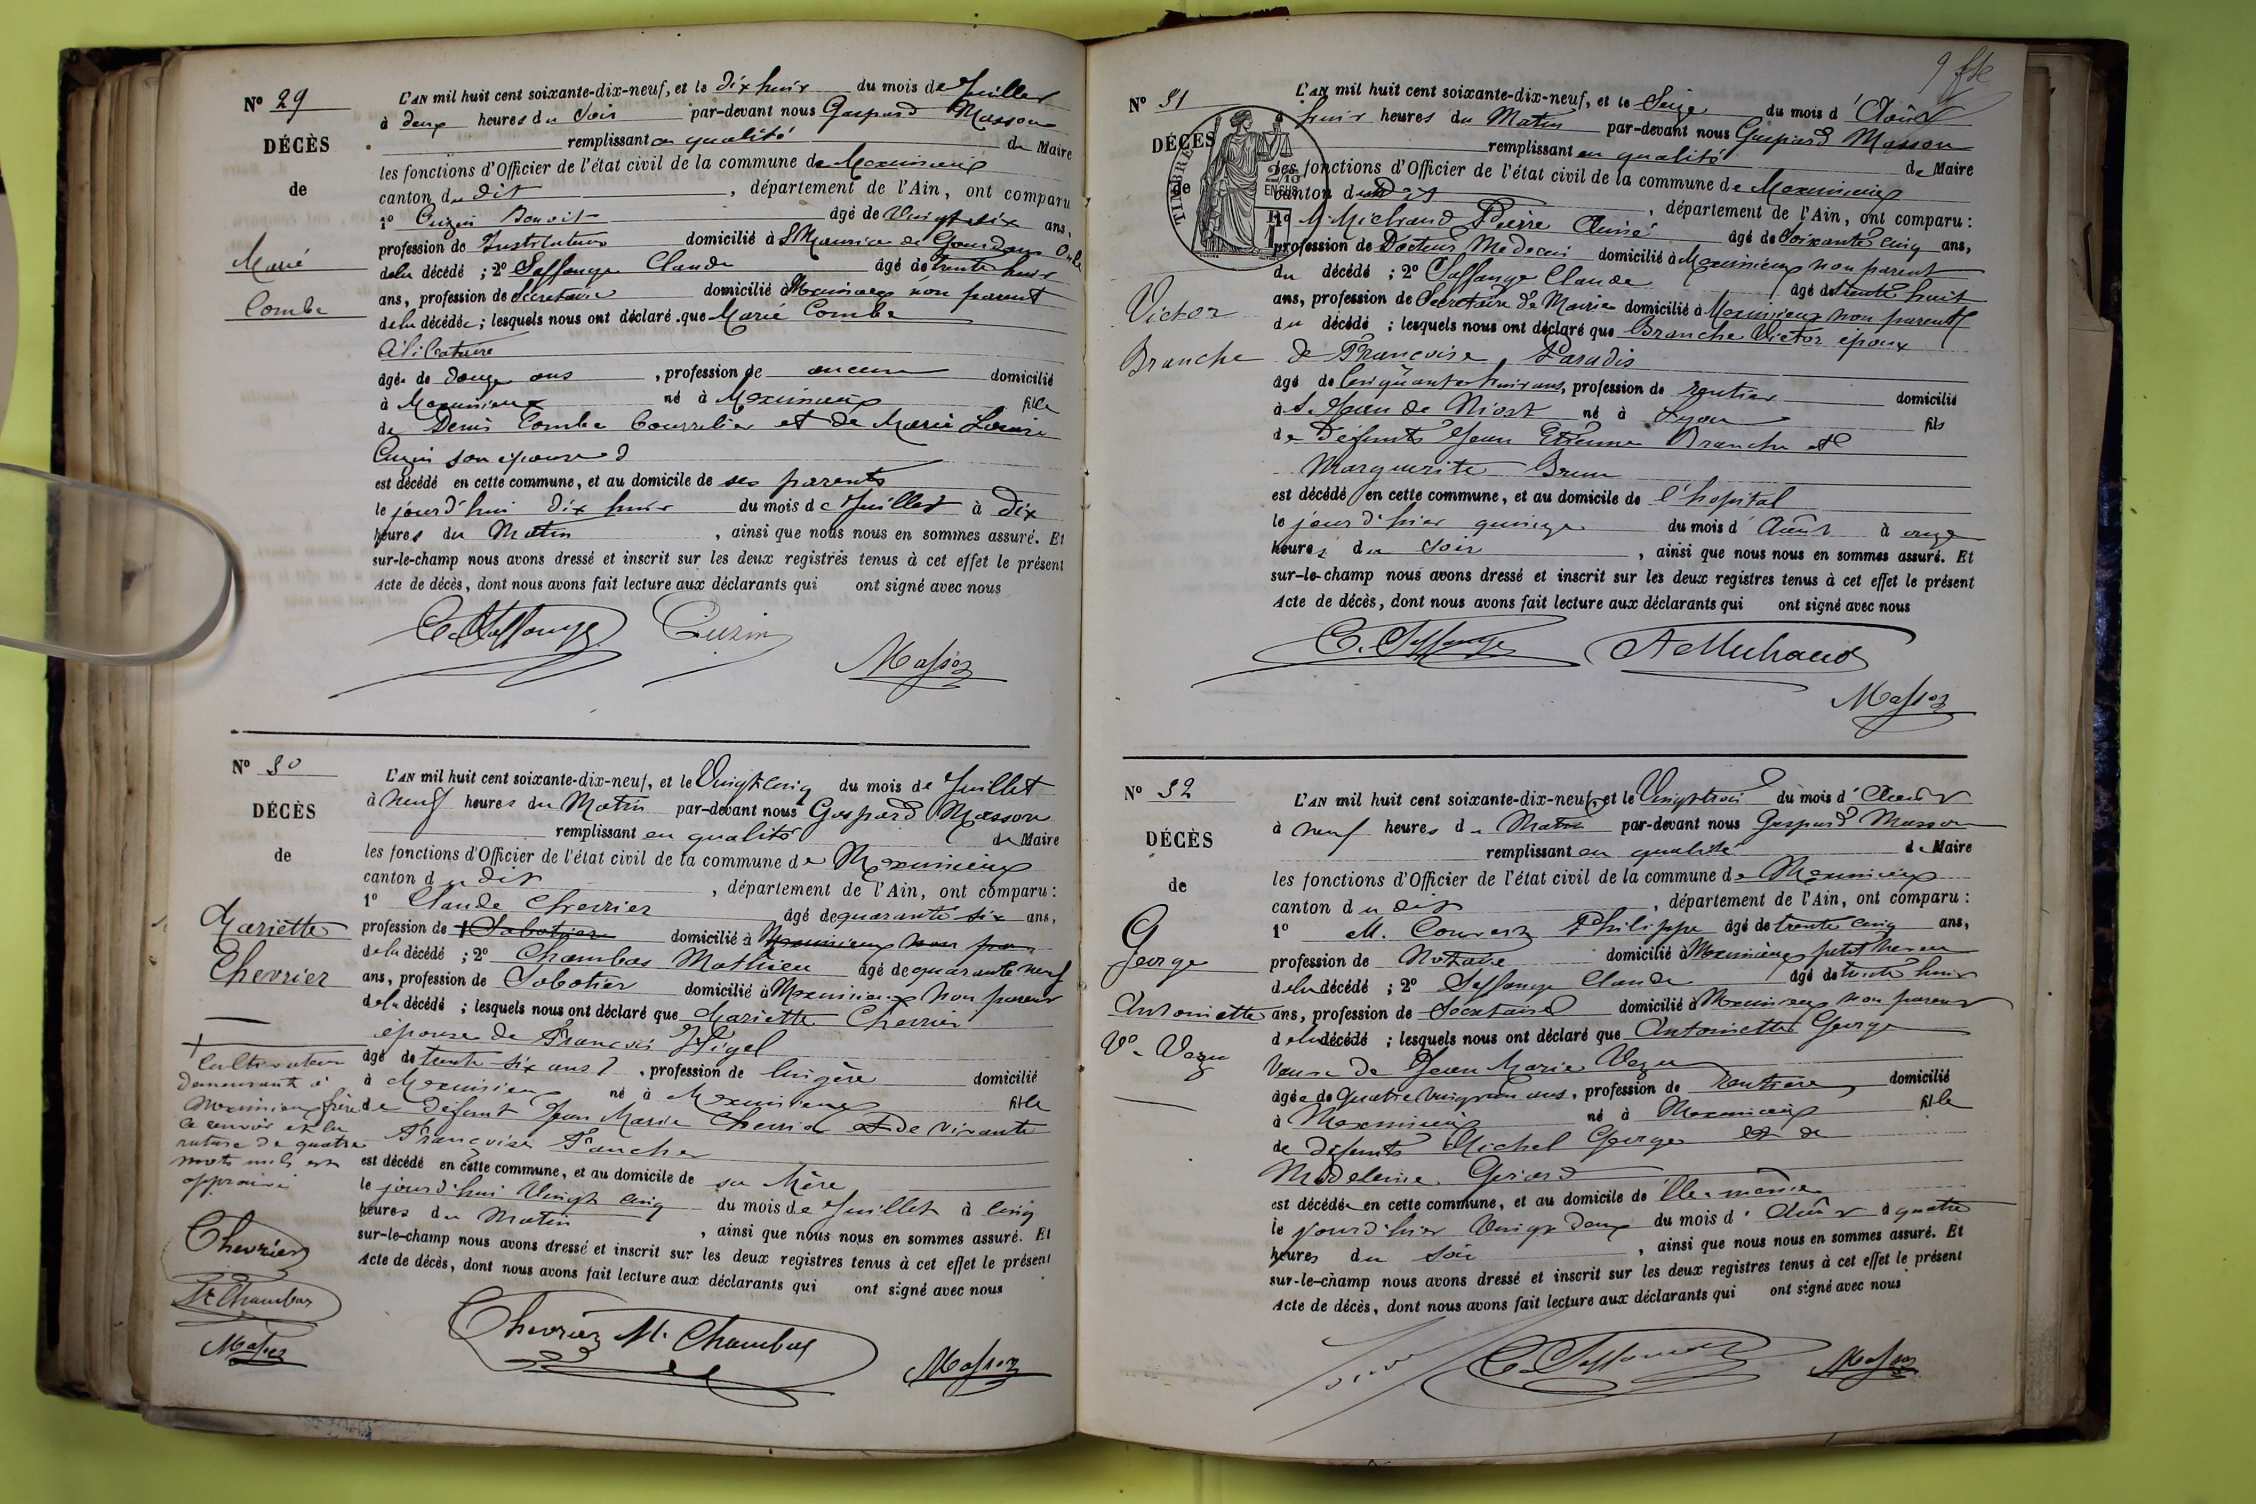 N° 29
DÉCÈS
de
Marie
Combe
L'AN mil huit cent soixante-dix-neuf, et le dix huit du mois de Juillet
à deux heures du Soir par-devant nous Gaspard Masson
remplissant en qualité de Maire
les fonctions d'Officier de l'état civil de la commune de Meximieux
canton du dit, département de l'Ain, ont comparu
1° Cuzin Benoit âgé de Vingt six ans,
profession de Instituteur domicilié à St Maurice de Gourdans Oncle
dela décédé ; 2° Saffange Claude âgé de trente huit
ans, profession de Secretaire domicilié à Meximieux non parent
dela décédée ; lesquels nous ont déclaré que Marie Combe
Célibataire
âgée de douze ans, profession de aucune domicilié
à Meximieux né à Meximieux fille
de Denis Combe Bourrelier et de Marie Louise
Cuzin son epouse
est décédé en cette commune, et au domicile de ses parents
le jourd'hui dix huit du mois de Juillet à dix
heures du Matin, ainsi que nous nous en sommes assuré. Et
sur-le-champ nous avons dressé et inscrit sur les deux registres tenus à cet effet le présent
Acte de décès, dont nous avons fait lecture aux déclarants qui ont signé avec nous
C. Saffange Cuzin
Masson
N° 30
DÉCÈS
de
Mariette
Chevrier
L'AN mil huit cent soixante-dix-neuf, et le Vingt cinq du mois de Juillet
à neuf heures du Matin par-devant nous Gaspard Masson
remplissant en qualité de Maire
les fonctions d'Officier de l'état civil de la commune de Meximieux
canton du dit, département de l'Ain, ont comparu :
1° Claude Chevrier âgé de quarante six ans,
profession de Sabotier domicilié à Meximieux non
dela décédé ; 2° Chambas Mathieu âgé de quarante neuf
ans, profession de Sabotier domicilié à Meximieux non parent
dela décédé ; lesquels nous ont déclaré que Mariette Chevrier
épouse de François
âgé de trente six ans, profession de lingère domicilié
à Meximieux né à Meximieux fille
de défunt Jean Marie Chevrier et de vivante
Françoise Faucher
est décédé en cette commune, et au domicile de sa Mère
le jourd'hui Vingt cinq du mois de Juillet à cinq
heures du Matin, ainsi que nous nous en sommes assuré. Et
sur-le-champ nous avons dressé et inscrit sur les deux registres tenus à cet effet le présent
Acte de décès, dont nous avons fait lecture aux déclarants qui ont signé avec nous
Cultivateur
demeurant à
Meximieux frère
ce renvoi et la
rature de quatre
mots nuls est
approuvé
Chevrier
M. Chambas
Masson
Chevrier M. Chambas
Masson
9
N° 31
DÉCÈS
de
Victor
Branche
TIMBRE
2/10
EN SUS
L'AN mil huit cent soixante-dix-neuf, et le Seize du mois d'Août
à huit heures du Matin par-devant nous Gaspard Masson
remplissant en qualité de Maire
les fonctions d'Officier de l'état civil de la commune de Meximieux
canton du Dit, département de l'Ain, ont comparu :
1° M. Michaud Pierre Aimé âgé de soixante cinq ans,
profession de Docteur Medecin domicilié à Meximieux non parent
du décédé ; 2° Saffange Claude âgé de trente huit
ans, profession de Secretaire de Mairie domicilié à Meximieux non parent
du décédé ; lesquels nous ont déclaré que Branche Victor époux
de Françoise Paradis
âgé de Cinquante huit ans, profession de rentier domicilié
à St Jean de Niost né à Lyon fils
de Défunts Jean Etienne Branche et
Marguerite Brun
est décédé en cette commune, et au domicile de l'hopital
le jour d'hier quinze du mois d'Août à onze
heures du Soir, ainsi que nous nous en sommes assuré. Et
sur-le-champ nous avons dressé et inscrit sur les deux registres tenus à cet effet le présent
Acte de décès, dont nous avons fait lecture aux déclarants qui ont signé avec nous
C. Saffange A Michaud
Masson
N° 32
DÉCÈS
de
George
Antoinette
Ve Vezu
L'AN mil huit cent soixante-dix-neuf, et le Vingt trois du mois d'Août
à neuf heures du Matin par-devant nous Gaspard Masson
remplissant en qualité de Maire
les fonctions d'Officier de l'état civil de la commune de Meximieux
canton du dit, département de l'Ain, ont comparu :
1° M. Philippe âgé de trente cinq ans,
profession de Notaire domicilié à Meximieux petit neveu
dela décédé ; 2° Saffange Claude âgé de trente huit
ans, profession de Secretaire domicilié à Meximieux non parent
dela décédé ; lesquels nous ont déclaré que Antoinette George
Veuve de Jean Marie Vezu
âgée de Quatre vingt un ans, profession de Rentiere domicilié
à Meximieux né à Meximieux fille
de défunts Michel George et de
Madeleine Girard
est décédée en cette commune, et au domicile de Elle même
le jour d'hier Vingt deux du mois d'Août à quatre
heures du Soir, ainsi que nous nous en sommes assuré. Et
sur-le-champ nous avons dressé et inscrit sur les deux registres tenus à cet effet le présent
Acte de décès, dont nous avons fait lecture aux déclarants qui ont signé avec nous
C. Saffange Masson